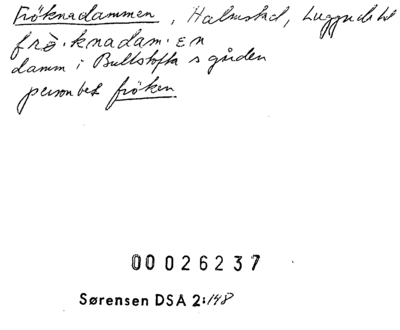 Fröknadammen, Halmstad, Luggude hd
frö·knadam·en
damm i Bullstofta s gården
personbet fröken.
00026237
Sørensen DSA 2:148